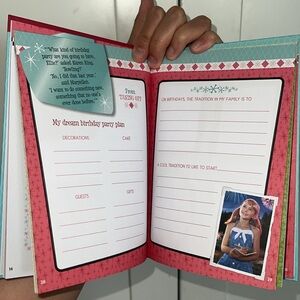 "What kind of birthday
party are you going to have,
Ellie?" asked Karen King.
"Bowling?"
"No, I did that last year,"
said Maryellen.
"I want to do something new,
something that no one's
ever done before."
From
TAKING OFF
My dream birthday party plan
DECORATIONS
CAKE
GUESTS
GIFTS
ON BIRTHDAYS, THE TRADITION IN MY FAMILY IS TO
A COOL TRADITION I'D LIKE TO START: